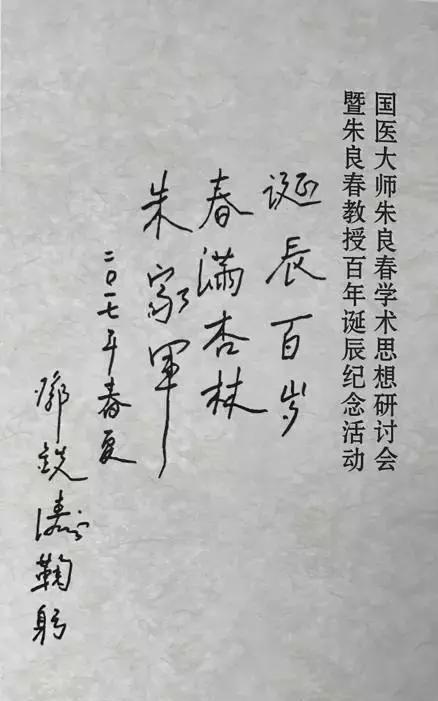 国医大师朱良春学术思想研讨会
暨朱良春教授百年诞辰纪念活动
诞辰百岁
春满杏林
朱家軍
二〇一七年春夏
鞠躬